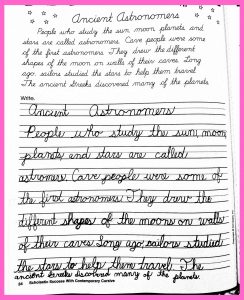 Ancient Astronomers
People who study the sun, moon, planets and
stars are called astronomers. Cave people were some
of the first astronomers. They drew the different
shapes of the moon on walls of their caves. Long
ago, sailors studied the stars to help them travel.
The ancient Greeks discovered many of the planets.
Write.
Ancient Astronomers
People who study the sun, moon,
planets and stars are called
astronomers. Cave people were some of
the first astronomers. They drew the
different shapes of the moons on walls
of their caves. Long ago, sailors studied
the stars to help them travel. The
ancient Greeks discovered many of the planets.
54 Scholastic Success With Contemporary Cursive